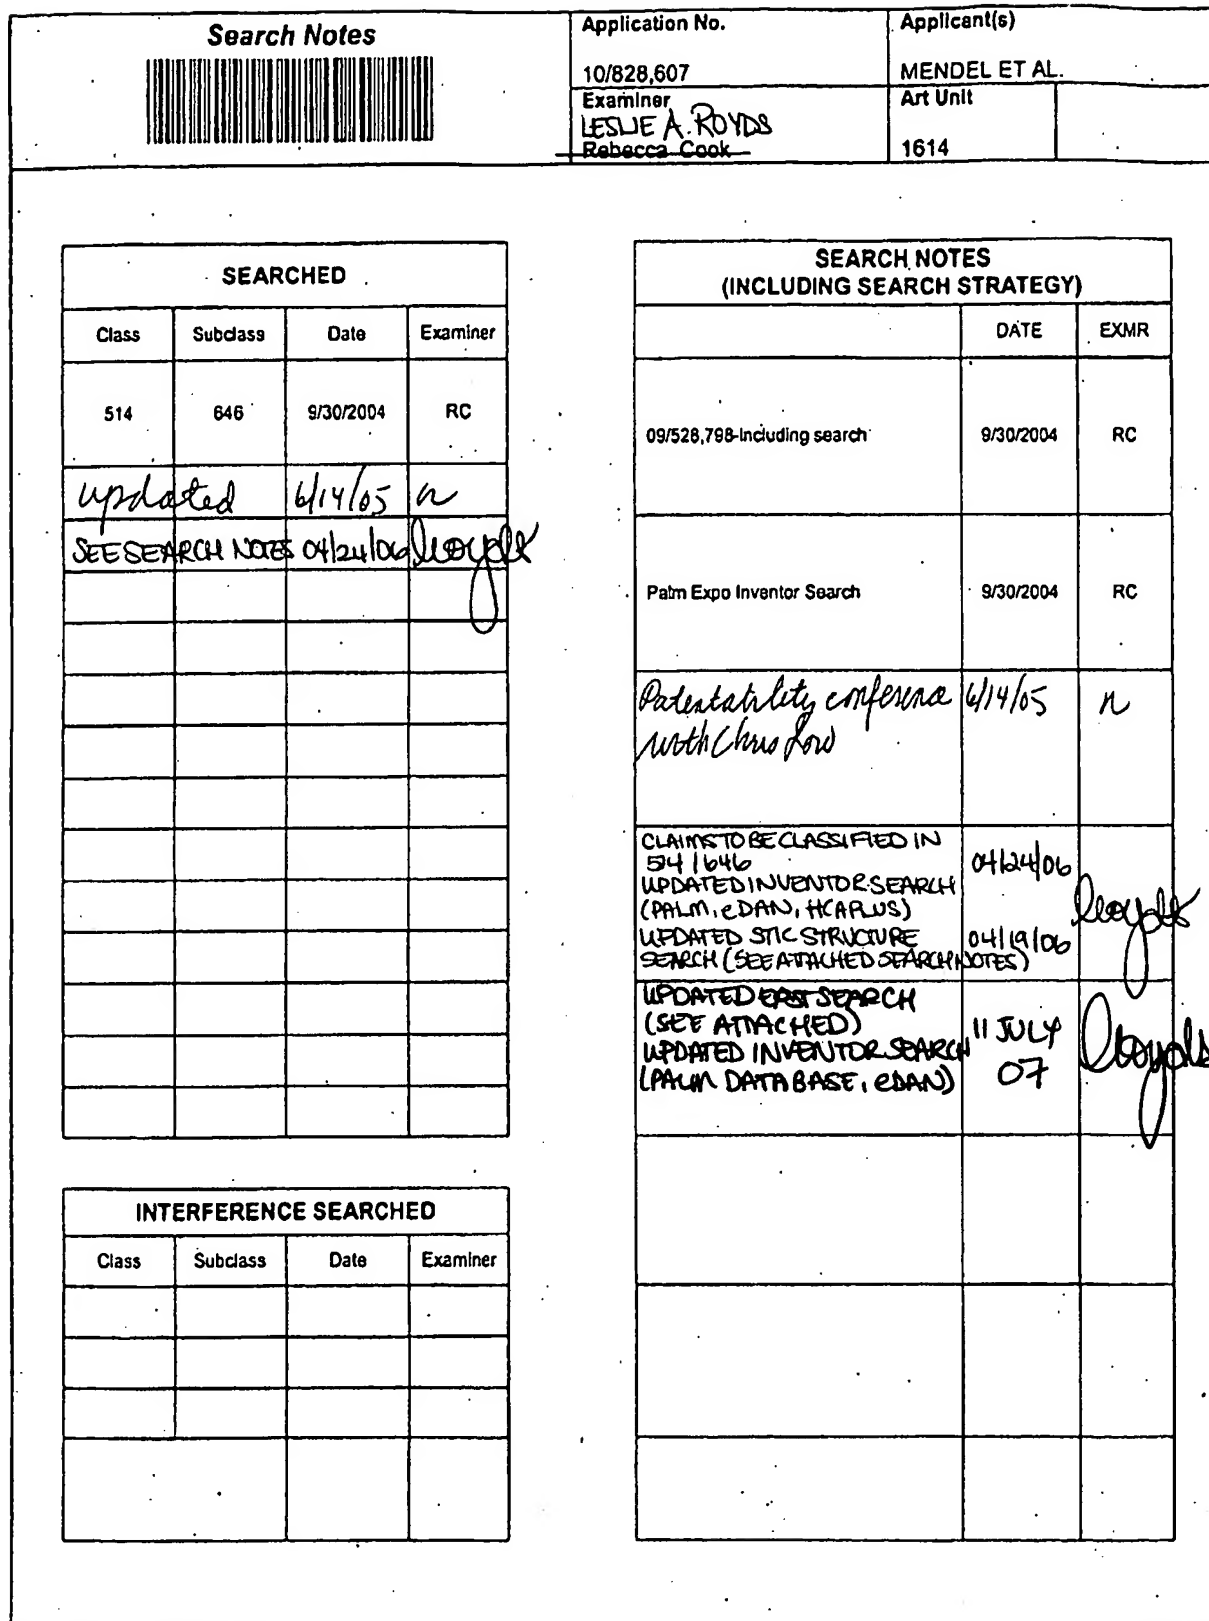 Search Notes
Application No.
Applicant(s)
10/828,607
MENDEL ET AL.
Examiner
Art Unit
LESLIE A. ROYDS
Rebecca Cook
1614
SEARCHED
Class Subclass Date Examiner
514 646 9/30/2004 RC
updated 6/14/05
SEE SEARCH NOTES 04/24/06
INTERFERENCE SEARCHED
Class Subclass Date Examiner
SEARCH NOTES
(INCLUDING SEARCH STRATEGY)
DATE EXMR
09/528,798-Including search 9/30/2004 RC
Palm Expo Inventor Search 9/30/2004 RC
Patentability conference 6/14/05
with Chris Low
CLAIMS TO BE CLASSIFIED IN
514/646 04/24/06
UPDATED INVENTOR SEARCH
(PALM, eDAN, HCAPLUS)
UPDATED STIC STRUCTURE 04/19/06
SEARCH (SEE ATTACHED SEARCH NOTES)
UPDATED EAST SEARCH
(SEE ATTACHED) 11 JULY
UPDATED INVENTOR SEARCH 07
(PALM DATABASE, eDAN)